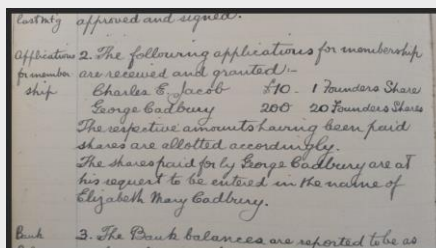 last mtg approved and signed.
Applications 2. The following applications for membership
for member are received and granted :-
ship Charles E. Jacob £10 - 1 Founders Share
George Cadbury 200 20 Founders Shares
The respective amounts having been paid
shares are allotted accordingly.
The shares paid for by George Cadbury are at
his request to be entered in the name of
Elizabeth Mary Cadbury.
Bank 3. The Bank balances are reported to be as